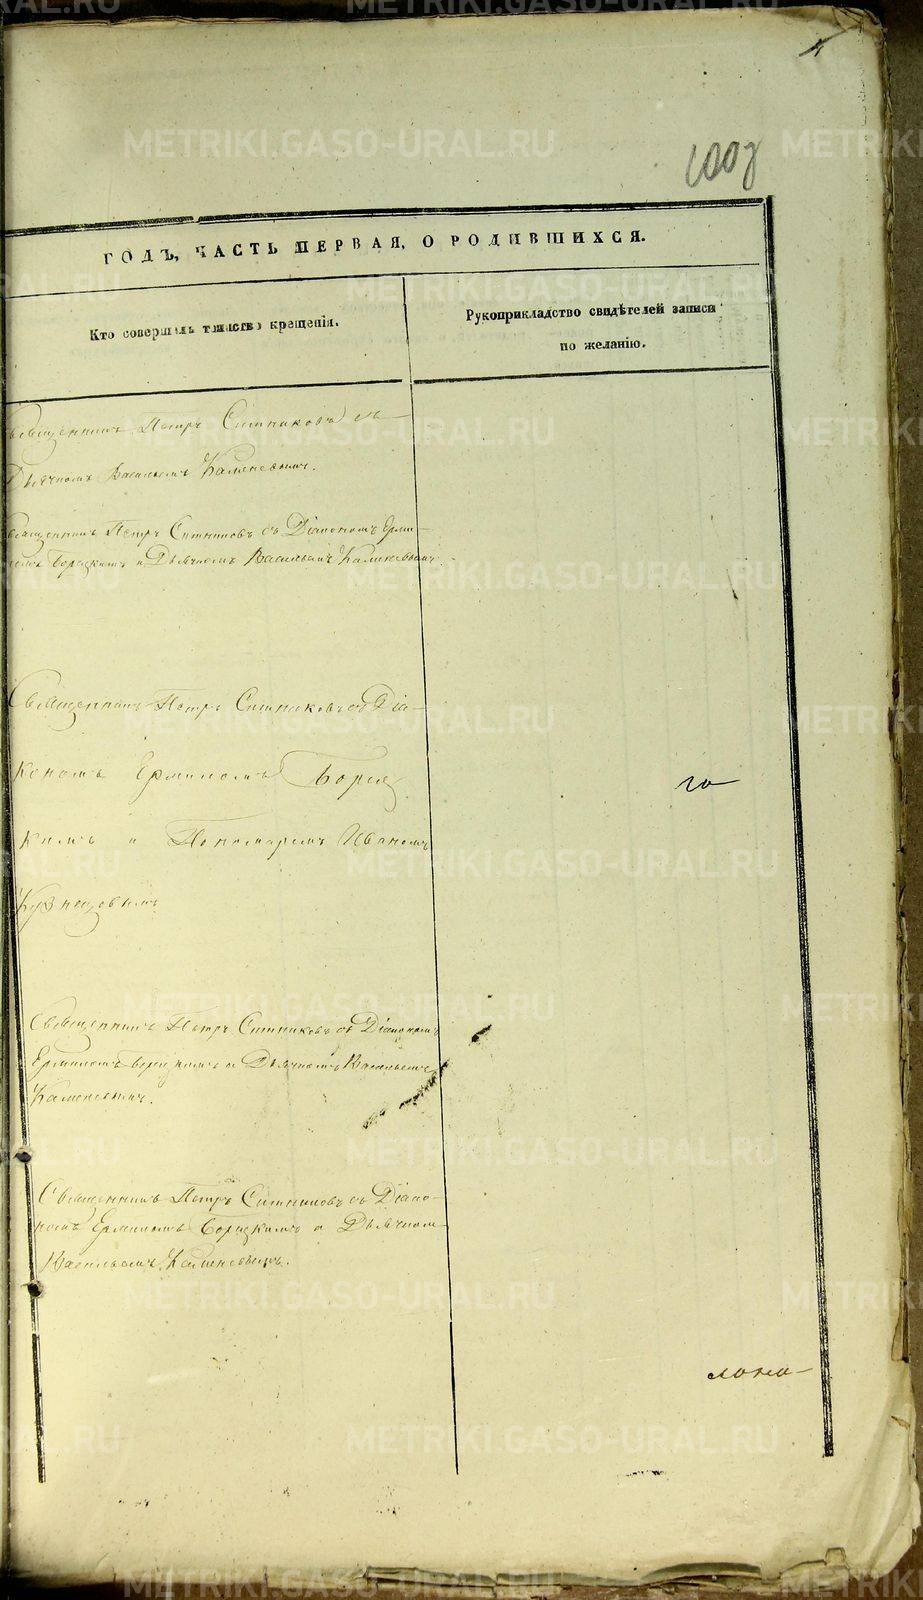 4
1008
ГОДЪ, ЧАСТЬ ПЕРВАЯ, О РОДИВШИХСЯ.
Кто совершалъ таинство крещенія.
Рукоприкладство свидѣтелей записи
по желанію.
Священникъ Петръ Ситниковъ съ
Дьячкомъ Васильемъ Каменевымъ.
Священникъ Петръ Ситниковъ съ Діакономъ Ерми-
ломъ Борецкимъ и Дьячкомъ Васильемъ Каменевымъ
Священникъ Петръ Ситниковъ съ Діа-
кономъ Ермиломъ Борец
го
кимъ и Пономаремъ Иваномъ
Кузнецовымъ
Священникъ Петръ Ситниковъ съ Діакономъ
Ермиломъ Борецкимъ и Дьячкомъ Васильемъ
Каменевымъ.
Священникъ Петръ Ситниковъ съ Діако-
номъ Ермиломъ Борецкимъ и Дьячкомъ
Васильемъ Каменевымъ.
METRIKI.GASO-URAL.RU